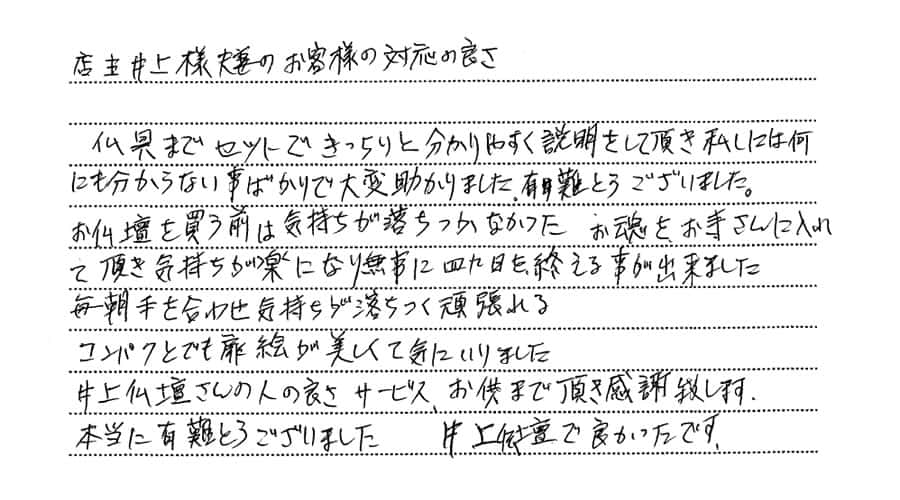 店主井上様夫妻のお客様の対応の良さ
仏具までセットできっちりと分かりやすく説明をして頂き私しには何
にも分からない事ばかりで大変助かりました、有難とうございました。
お仏壇を買う前は気持ちが落ちつかなかった お魂をお寺さんに入れ
て頂き気持ちが楽になり無事に四九日を終える事が出来ました
毎朝手を合わせ気持ちが落ちつく頑張れる
コンパクとでも扉絵が美しくて気にいりました
井上仏壇さんの人の良さ サービス、お供まで頂き感謝致します.
本当に有難とうございました 井上仏壇で良かったです.